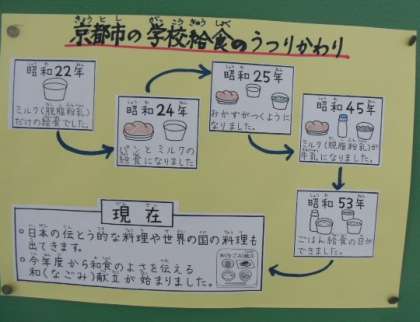 京都市の学校給食のうつりかわり
昭和22年
ミルク(脱脂粉乳)
だけの給食でした。
昭和24年
パンとミルクの
給食になりました
昭和25年
おかずがつくように
なりました。
昭和45年
ミルク(脱脂粉乳)が
牛乳になりました
昭和53年
ごはん給食の日が
できました。
現在
◦日本の伝とう的な料理や世界の国の料理も
出てきます。
◦今年度から和食のよさを伝える
和(なごみ)献立が始まりました。